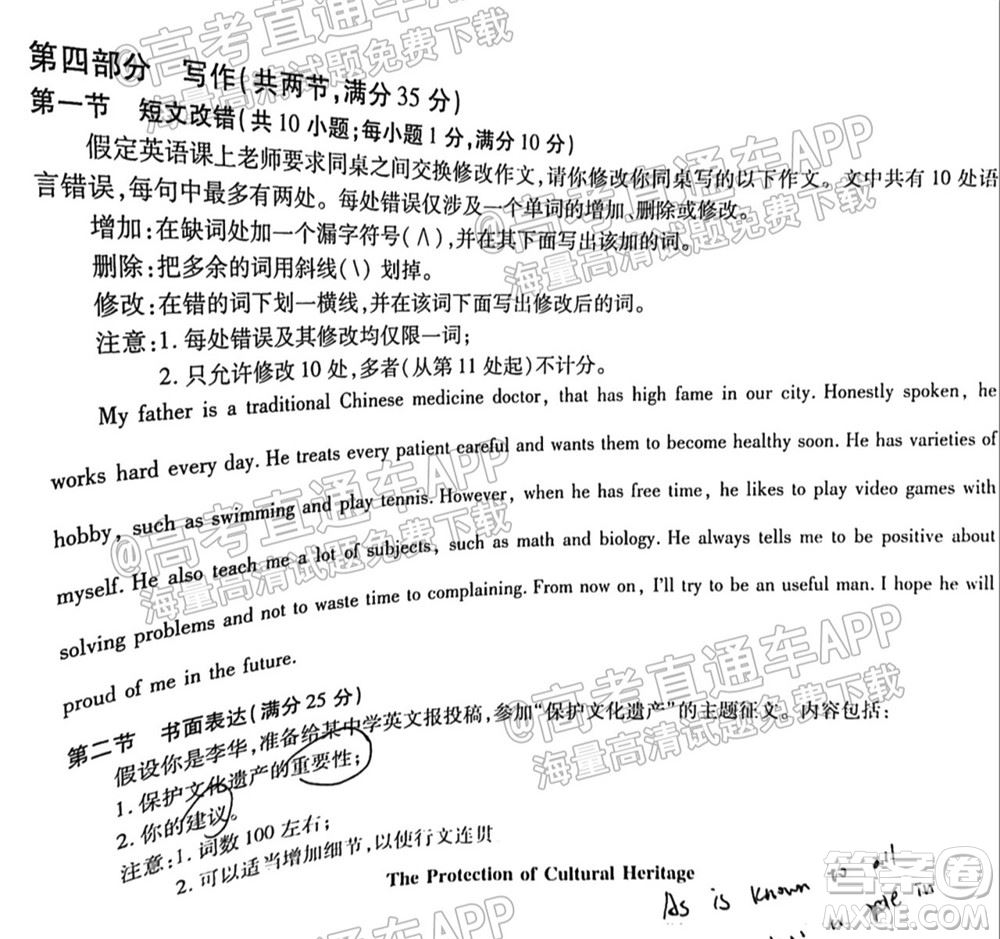 第四部分 写作(共两节,满分35分)
第一节 短文改错(共10小题;每小题1分,满分10分)
假定英语课上老师要求同桌之间交换修改作文,请你修改你同桌写的以下作文。文中共有10处语
言错误,每句中最多有两处。每处错误仅涉及一个单词的增加、删除或修改。
增加:在缺词处加一个漏字符号(∧),并在其下面写出该加的词。
删除:把多余的词用斜线(\)划掉。
修改:在错的词下划一横线,并在该词下面写出修改后的词。
注意:1. 每处错误及其修改均仅限一词;
2. 只允许修改10处,多者(从第11处起)不计分。
My father is a traditional Chinese medicine doctor, that has high fame in our city. Honestly spoken, he
works hard every day. He treats every patient careful and wants them to become healthy soon. He has varieties of
hobby, such as swimming and play tennis. However, when he has free time, he likes to play video games with
myself. He also teach me a lot of subjects, such as math and biology. He always tells me to be positive about
solving problems and not to waste time to complaining. From now on, I'll try to be an useful man. I hope he will
proud of me in the future.
第二节 书面表达(满分25分)
假设你是李华,准备给某中学英文报投稿,参加“保护文化遗产”的主题征文。内容包括:
1. 保护文化遗产的重要性;
2. 你的建议。
注意:1. 词数100左右;
2. 可以适当增加细节,以使行文连贯
The Protection of Cultural Heritage
As is known to all
@高考直通车APP
海量高清试题免费下载
@高考直通车APP
海量高清试题免费下载
@高考直通车APP
海量高清试题免费下载
@高考直通车APP
海量高清试题免费下载
@高考直通车APP
答案圈
MXQE.COM